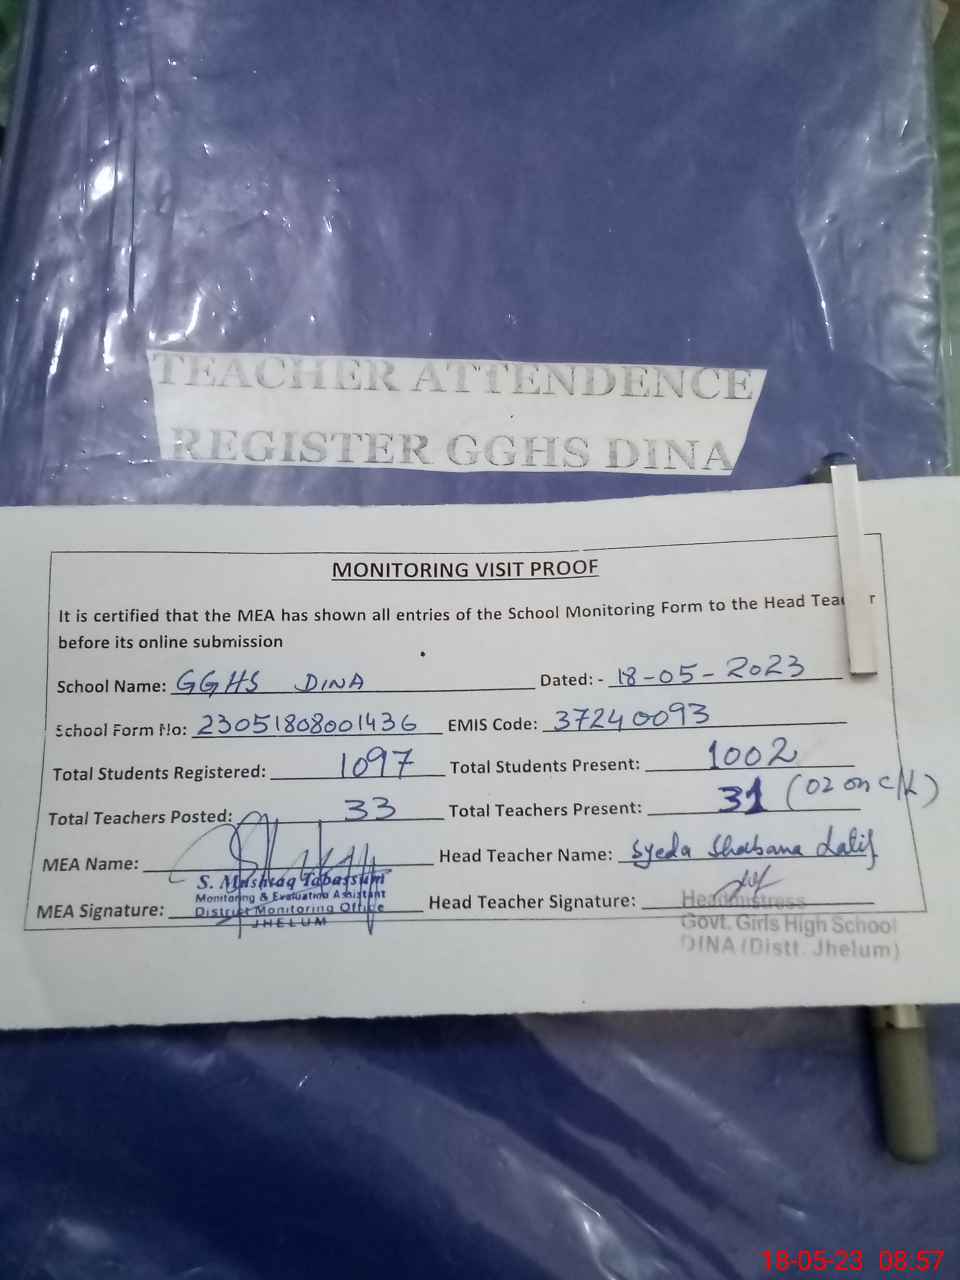 TEACHER ATTENDENCE
REGISTER GGHS DINA
MONITORING VISIT PROOF
It is certified that the MEA has shown all entries of the School Monitoring Form to the Head Tea r
before its online submission
School Name: GGHS DINA Dated: - 18-05-2023
School Form No: 23051808001436 EMIS Code: 37240093
Total Students Registered: 1097 Total Students Present: 1002
Total Teachers Posted: 33 Total Teachers Present: 31 (02 on c/L)
MEA Name: Head Teacher Name: Syeda Shabana Latif
S. Mushtaq Tabassum
Monitoring & Evaluation Assistant
MEA Signature: District Monitoring Office Head Teacher Signature: Headmistress
JHELUM
Govt. Girls High School
DINA (Distt. Jhelum)
18-05-23 08:57